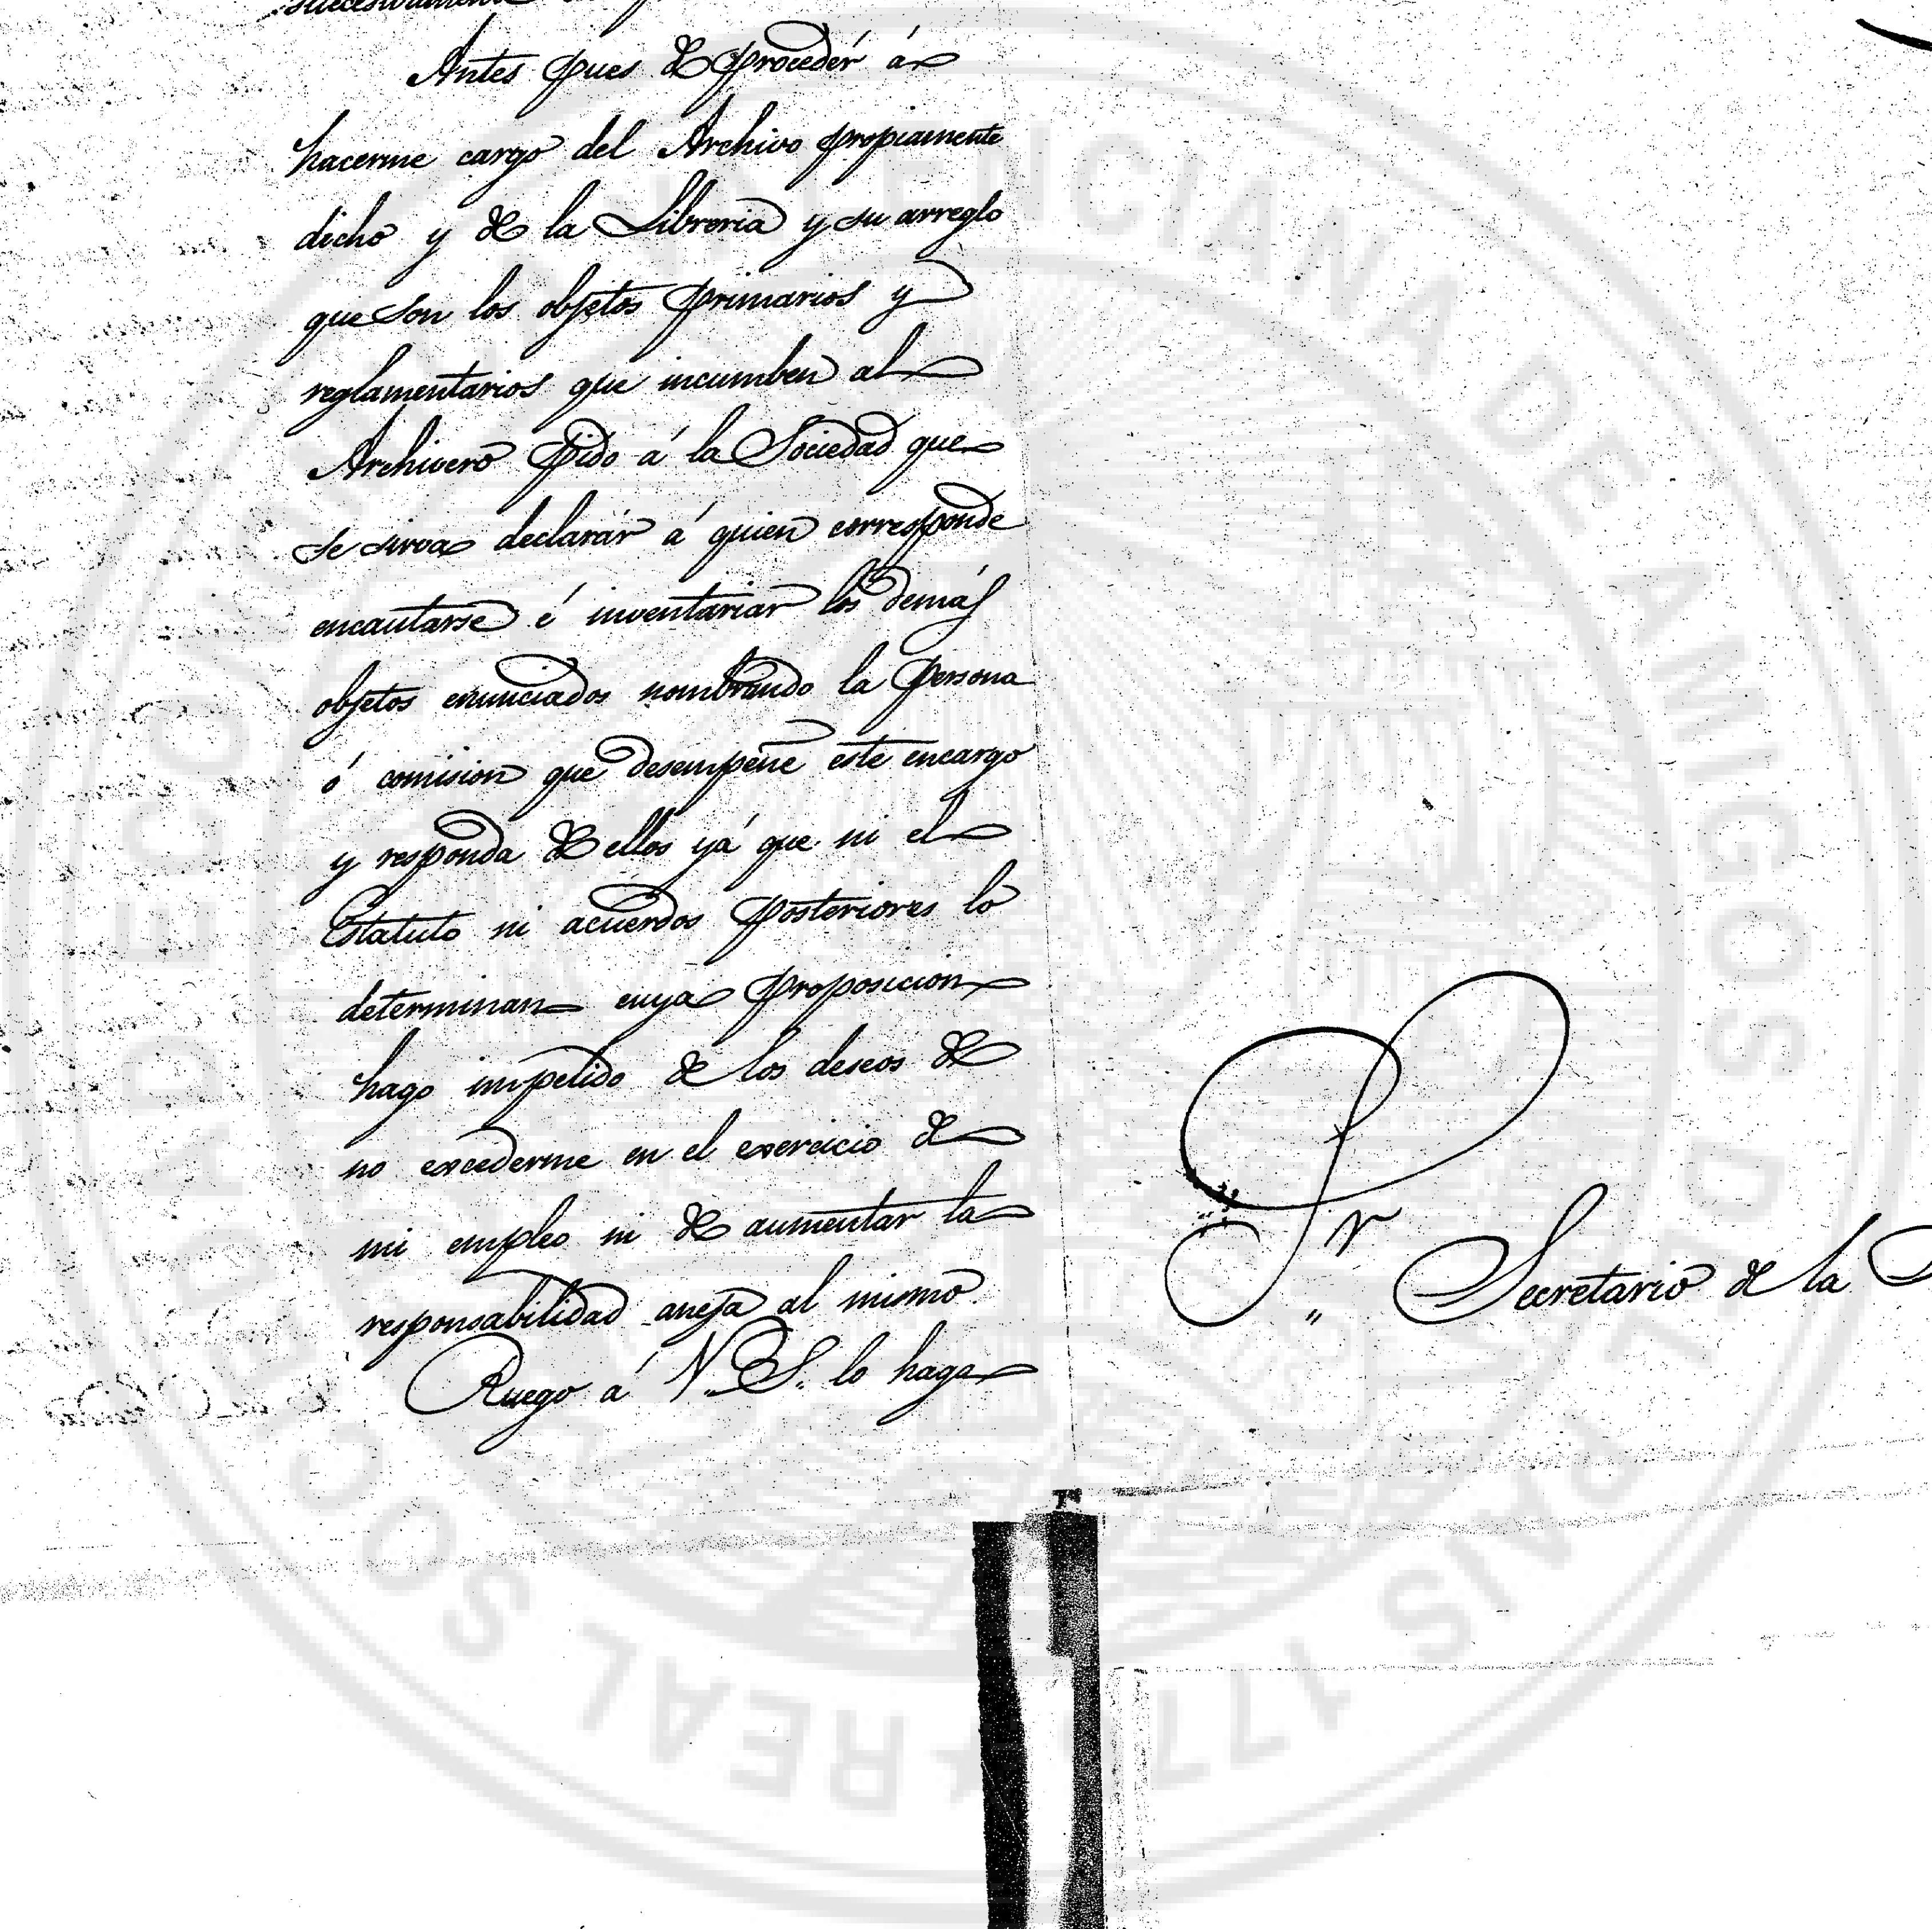 Antes pues de procedér á
hacerme cargo del Archivo propiamente
dicho y de la Libreria y su arreglo
que son los objetos primarios y
reglamentarios que incumben al
Archivero pido á la Sociedad que
se sirva declarár á quien corresponde
encautarse é inventariar los demás
objetos enunciados nombrando la persona
ó comision que desempeñe este encargo
y responda de ellos yá que ni el
Estatuto ni acuerdos posteriores lo
determinan cuya proposicion
hago impelido de los deseos de
no excederme en el exercicio de
mi empleo ni de aumentar la
responsabilidad aneja al mismo
Ruego á V.S. lo haga
Sr Secretario de la
REAL SOCIEDAD ECONÓMICA VALENCIANA DE AMIGOS DEL PAIS 177